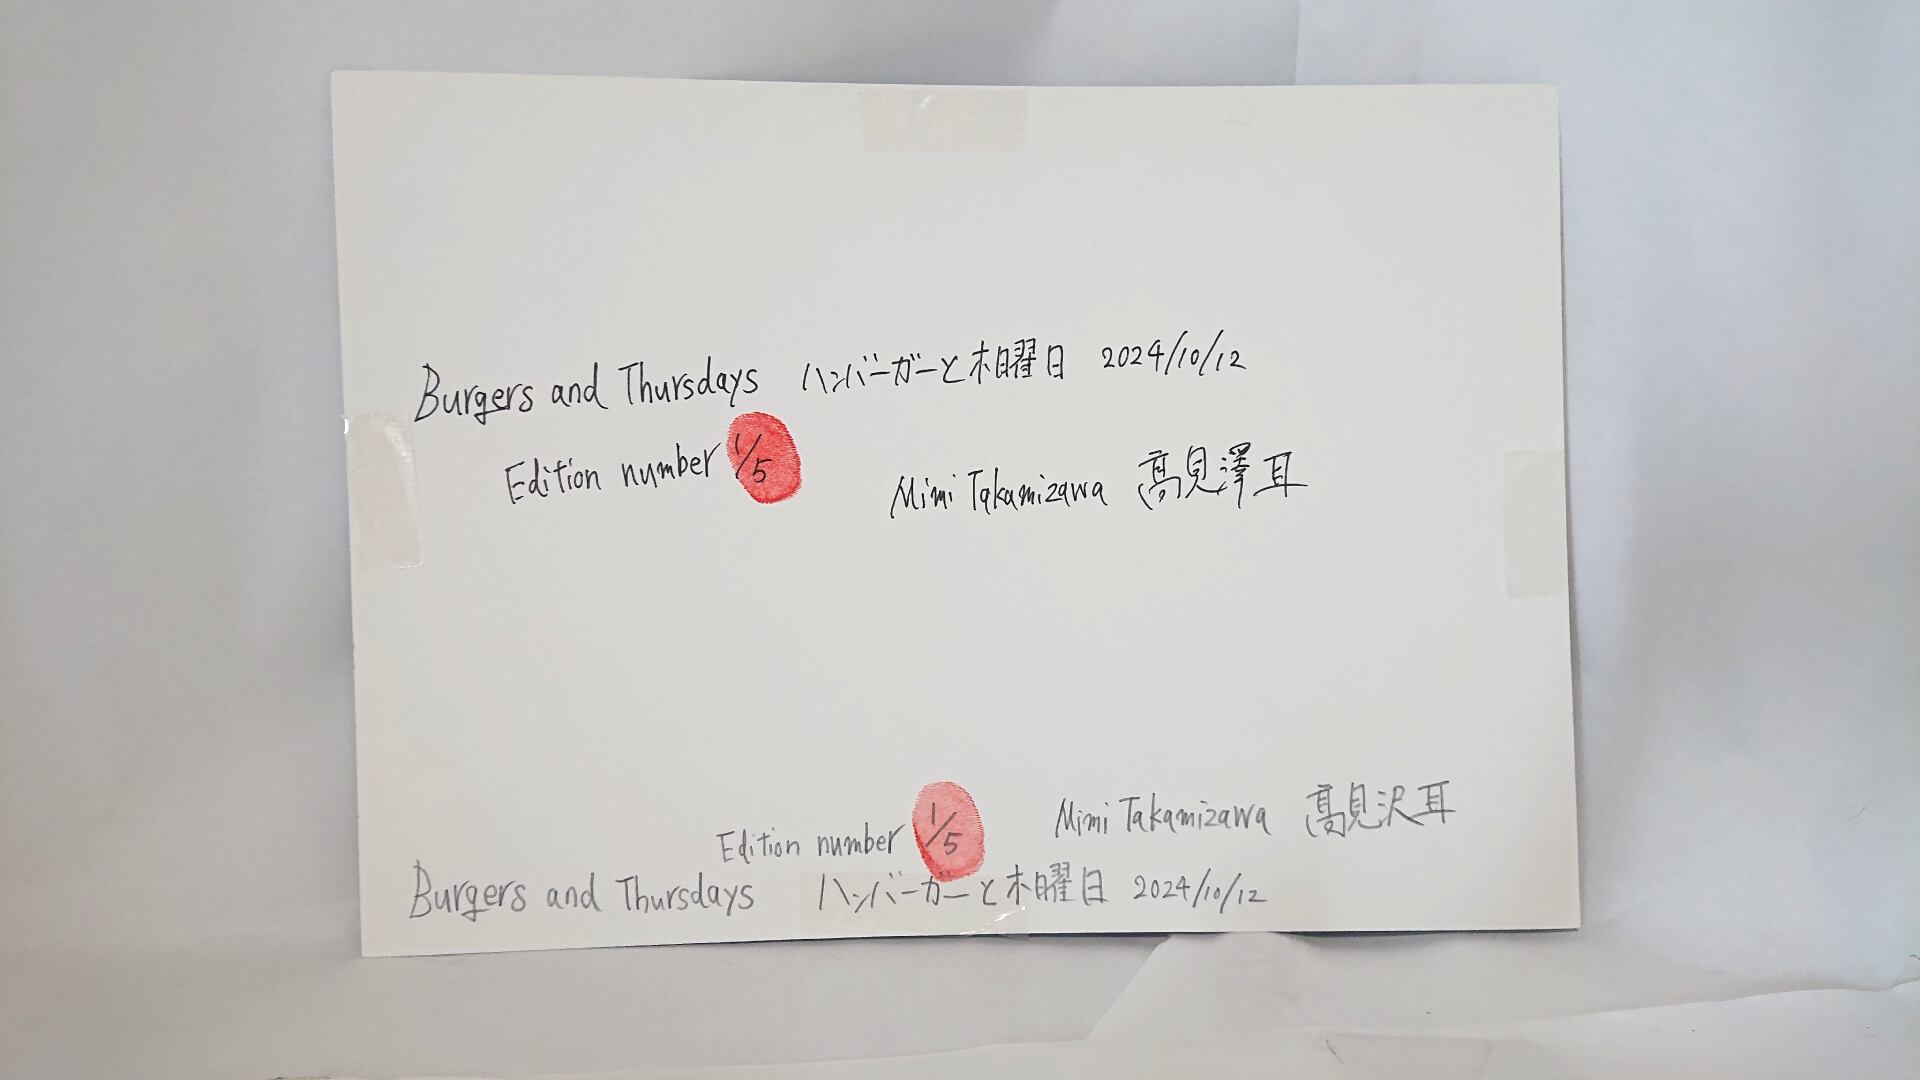 Burgers and Thursdays ハンバーガーと木曜日 2024/10/12
Edition number 1/5
Mimi Takamizawa 髙見澤耳
Edition number 1/5
Mimi Takamizawa 髙見沢耳
Burgers and Thursdays ハンバーガーと木曜日 2024/10/12